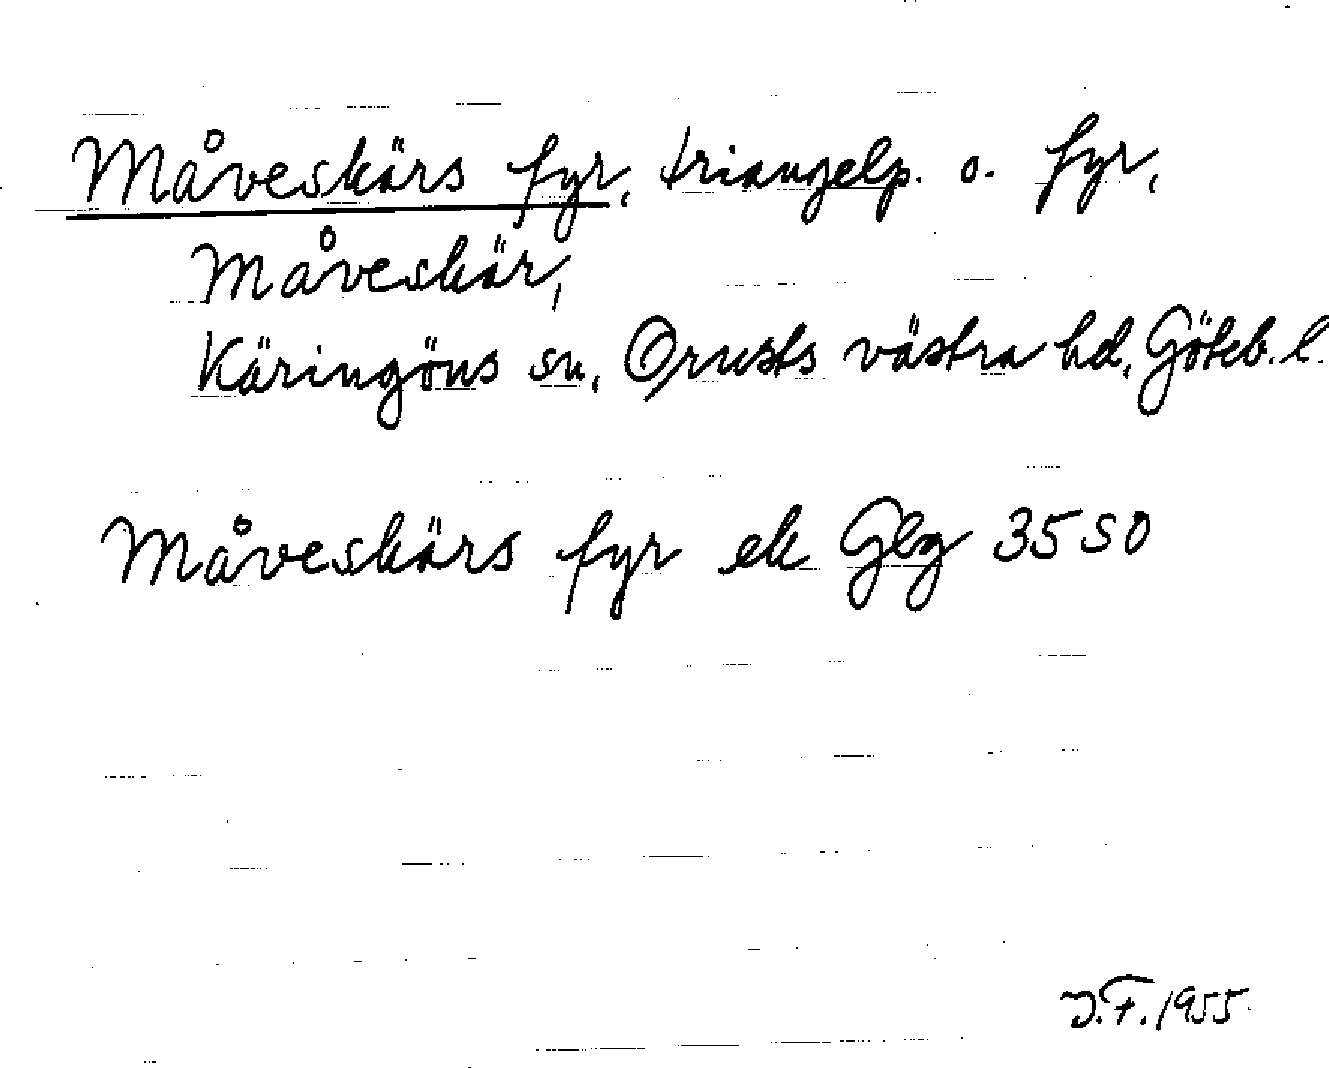 Måveskärs fyr, triangelp. o. fyr,
Måveskär,
Käringöns sn, Orusts västra hd, Göteb. l.
Måveskärs fyr ek Gbg 35 SO
J.F. 1955